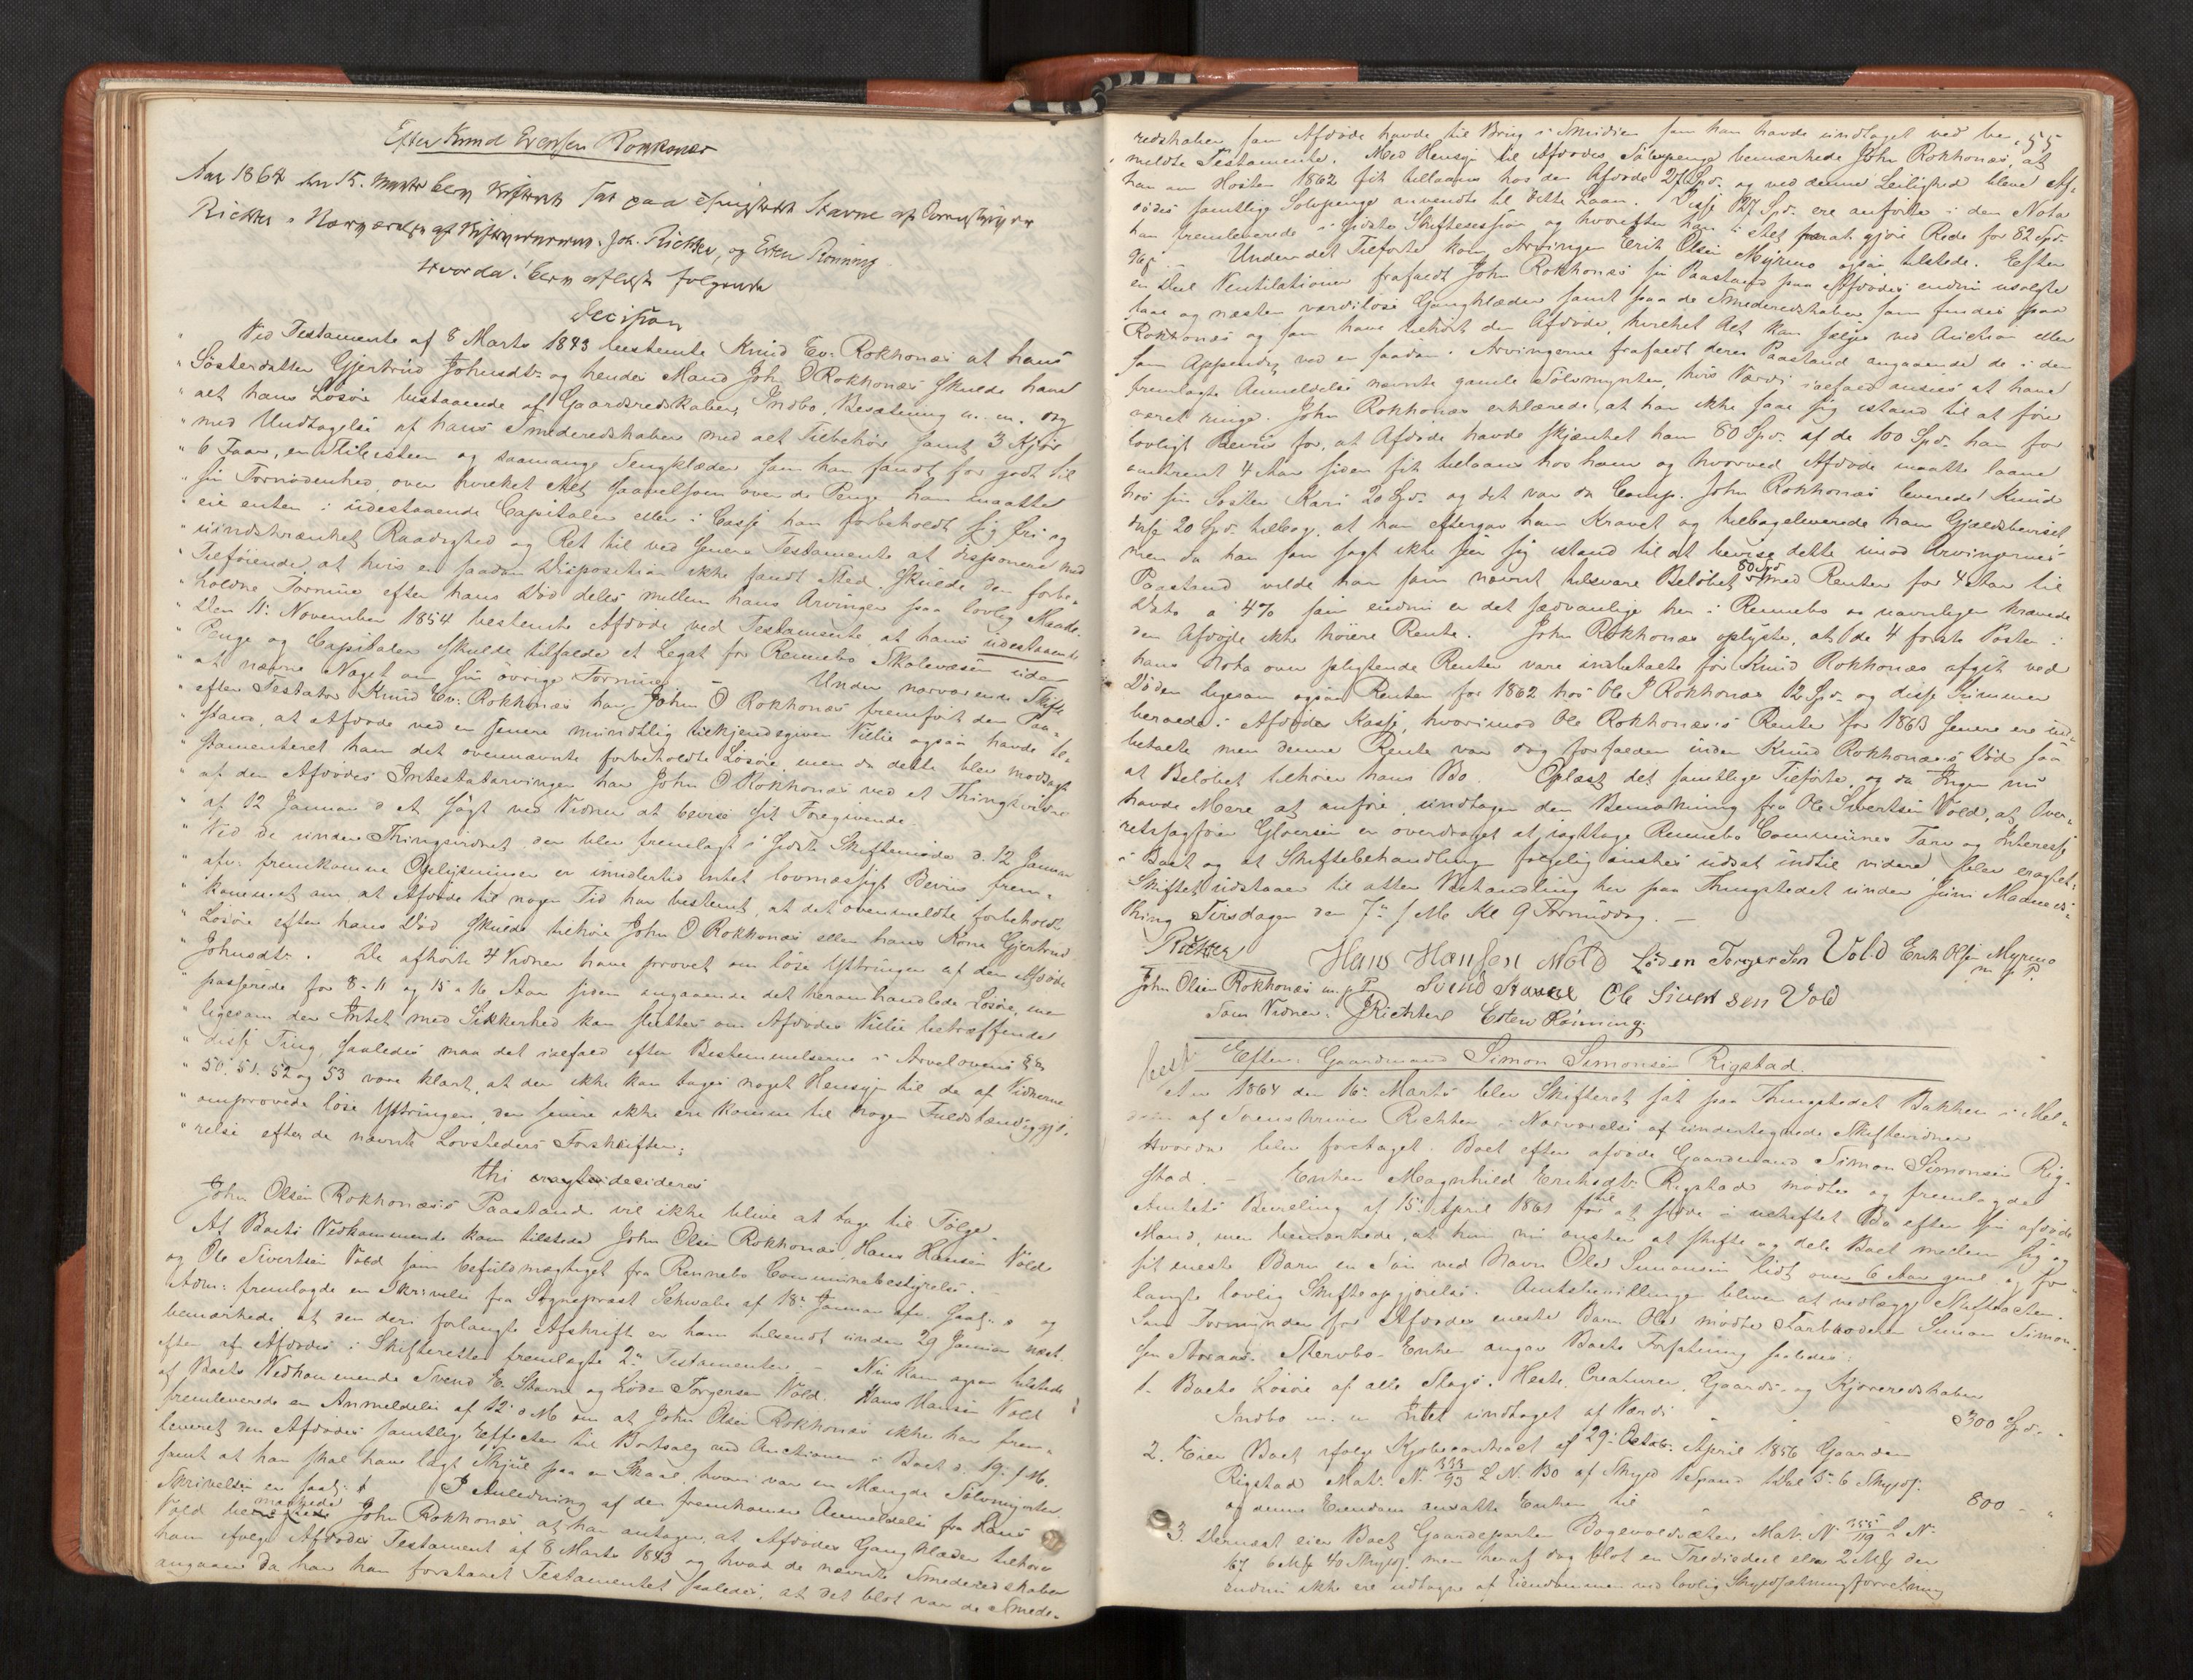 Efter Knud Evensen Rokkones
Aar 1864 den 15. Marts blev Skifteret sat paa Thingstedet Stavne af Sorenskriver
Richter i Nærværelse af Skiftevidnerne Joh. Richter, og Esten Rönning
Hvorda! blev afsagt følgende
Decision
" Ved Testamente af 8 Marts 1843 bestemte Knud Ev. Rokkonæs at hans
" Søsterdatter Gjertrud Johnsdtr og hendes Mand John O Rokkonæs skulde have
" alt hans Løsöre bestaaende af Gaardsredskaber, Indbo, Besætning m. m. og
" med Undtagelse af hans Smederedskaber med alt Tilbehör samt 3 Kjör
" 6 Faar, en Slibesteen og saamange Sengklæder som han fandt for godt til
" sin Fornödenhed, over hvilket Alt saavelsom over de Penge han maatte
" eie enten i udestaaende Capitaler eller i Casse han forbeholdt sig fri og
" uindskrænket Raadighed og Ret til ved senere Testamente at disponere med
" Tilföiende, at hvis en saadan Disposition ikke fandt Sted, skulde den forbe-
" holdne Formue efter hans Död deles mellem hans Arvinger paa lovlig Maade.
" Den 11. November 1854 bestemte Afdöde ved Testamente at hans udestaaende
" Penge og Capitaler skulde tilfalde et Legat for Rennebo Skolevæsen uden
" at nævne Noget om sin övrige Formue. – Under nærværende Skifte
" efter Testator Knud Ev. Rokkonæs har John O Rokkonæs fremfört den Paa-
" stand, at Afdöde ved en senere mundtlig tilkjendegiven Villie ogsaa havde te-
" stamenteret ham det ovennævnte forbeholdte Lösöre, men da dette blev modsagt
" af den Afdödes Intestatarvinger har John O Rokkonæs ved et Thingsvidne
" af 12 Januar d. A. sögt ved Vidner at bevise sit Foregivende.
" Ved de under Thingsvidnet, der blev fremlagt i sidste Skiftemöde d. 12 Januar
" afv. fremkomne Oplysninger er imidlertid intet lovmæssigt Beviis frem-
" kommet om, at Afdöde til nogen Tid har bestemt, at det ovenmeldte forbeholdte
" Lösöre efter hans Död skulde tilhöre John O Rokkonæs eller hans Kone Gjertrud
" Johnsdtr. De afhörte 4 Vidner have provet om löse Yttringer af den Afdöde
" passerede for 8 - 11 og 15 a 16 Aar siden angaaende det heromhandlede Lösöre, men
" ligesom der Intet med Sikkerhed kan sluttes om Afdödes Villie betræffende
" disse Ting, saaledes maa det ialfald efter Bestemmelserne i Arvelovens §§
" 50. 51. 52 og 53 være klart, at der ikke kan tages noget Hensyn til de af Vidnerne
" omprovede löse Yttringer, der senere ikke ere komne til nogen Fuldstændiggjö-
" relse efter de nævnte Lovsteders Forskrifter;
thi eragtes decideres
John Olsen Rokkonæs's Paastand vil ikke blive at tage til Følge.
Af Boets Vedkommende kom tilstede John Olsen Rokkonæs, Hans Hansen Vold
og Ole Sivertsen Vold som befuldmægtiget fra Rennebo Communebestyrelse.
Adm: fremlagde en Skrivelse fra Sogneprest Schwabe af 18. Januar afv. saal.: e og
bemærkede, at den deri forlangte Afskrift er ham tilsendt under 29 Januar næst-
efter af Afdödes i Skifteretten fremlagte 2de Testamenter – Nu kom ogsaa tilstede
af Boets Vedkommende Svend E. Stavne og Löden Torgersen Vold. Hans Hansen Vold
fremleverede en Anmeldelse af 12 d M om at John Olsen Rokkonæs ikke har frem-
leveret den Afdödes samtlige Effecter til Bortsalg ved Auctionen i Boet d. 19. f M.
samt at han skal have lagt Skjul paa en Skaal, hvori var en Mængde Sölvmynter.
Skrivelsen er saal: f I Anledning af den fremkomne Anmeldelse fra Hans
Vold bemærkede John Rokkonæs, at han antager, at Afdödes Gangklæder tilhöre
ham ifølge Afdödes Testament af 8 Marts 1843 og hvad de nævnte Smederedskaber
angaaer da har han forstaaet Testamentet saaledes, at det blot var de Smede-
55
redskaber som Afdöde havde til Brug i Smidien som han havde undtaget ved be-
meldte Testamente. Med Hensyn til Afdödes Sölvpenge bemærkede John Rokkonæs, at
han om Hösten 1862 fik tillaans hos den Afdöde 27 Spd. og ved denne Leilighed bleve Af-
dödes samtlige Sölvpenge anvendte til dette Laan. Disse 27 Spd. ere anförte i den Nota
han fremleverede i sidste Skiftesession og hvorefter han i Alt gjör Rede for 82 Spd.
96 s. – Under det Tilförte kom Arvingen Erik Olsen Myrmo ogsaa tilstede. Efter
en Deel Ventilationer frafaldt John Rokkonæs sin Paastand paa Afdödes endnu usolgte
faae og næsten værdilöse Gangklæder samt paa de Smederedskaber som findes paa
Rokkonæs og som have tilhört den Afdöde, hvilket Alt kan sælges ved Auction eller
som Appendix ved en saadan. Arvingerne frafaldt deres Paastand angaaende de i den
fremlagte Anmeldelse nævnte gamle Sölvmynter, hvis Værdi ialfald ansees at have
været ringe. John Rokkonæs erklærede, at han ikke saae sig istand til at före
lovligt Beviis for, at Afdöde havde skjænket ham 80 Spd. af de 100 Spd. han for
omtrent 4 Aar siden fik tillaans hos ham og hvorved Afdöde maatte laane
hos sin Söster Kari 20 Spd. og det var da Comp. John Rokkonæs leverede Knud
disse 20 Spd. tilbage, at han eftergav ham Kravet og tilbageleverede ham Gjældsbeviset
men da han som sagt ikke seer sig istand til at bevise dette imod Arvingernes
Paastand vilde han som nævnt tilsvare Belöbet 80 Spd med Renter for 4 Aar til
Dato a 4% som endnu er det sædvanlige her i Rennebo og navnligen krævede
den Afdöde ikke höiere Rente. John Rokkonæs oplyste, at de 4 förste Poster i
hans Nota over skyldende Renter vare indbetalte för Knud Rokkonæs afgik ved
Döden ligesom ogsaa Renten for 1862 hos Ole J Rokkonæs 12 Spd. og disse Summer
beroede i Afdödes Kasse, hvorimod Ole Rokkonæs's Rente for 1863 senere ere ind-
betalte men denne Rente var dog forfalden inden Knud Rokkonæs's Död saa
at Belöbet tilhörer hans Bo. Oplæst det samtlige Tilförte, og da Ingen nu
havde Mere at anföre, undtagen den Bemærkning fra Ole Sivertsen Vold, at Over-
retssagförer Gloersen er overdraget at iagttage Rennebo Communes Tarv og Interesse
i Boet og at Skiftebehandling fölgelig önskes udsat indtil videre, blev eragtet:
Skiftet udstaaer til atter Behandling her paa Thingstedet under Juni Maaneds
Thing Tirsdagen den 7de f M. Kl 9 Formiddag. –
Richter Hans Hansen Vold Löden Torgersen Vold Erik Olsen Myrmo
m. p. P.
John Olsen Rokkonæs m. p. P. Svend Stavne Ole Sivertsen Vold
Som Vidner: J Richter Esten Rönning.
Efter Gaardmand Simon Simonsen Rigstad.
Aar 1864 den 16. Marts blev Skifteret sat paa Thingstedet Bakken i Mel-
dalen af Sorenskriver Richter i Nærværelse af undertegnede Skiftevidner
Hvorda blev foretaget Boet efter afdöde Gaardmand Simon Simonsen Rig-
stad. – Enken Magnhild Eriksdtr Rigstad mödte og fremlagde
Amtets Bevilling af 15. April 1861 for til at sidde i uskiftet Bo efter sin afdöde
Mand, men bemærkede, at hun nu önsker at skifte og dele Boet mellem sig og
sit eneste Barn en Sön ved Navn Ole Simonsen lidt over 6 Aar gml og for-
langte lovlig Skifteopgjörelse. Amtsbevillingen bliver at vedlægge Skifteacten.
Som Formynder for Afdödes eneste Barn Ole mödte Farbroderen Simon Simon-
sen Storaas. Stervbo-Enken angav Boets Forfatning saaledes:
1. Boets Lösöre af alle Slags. Heste, Creaturer, Gaards- og Kjöreredskaber
Indbo m. m. Intet undtaget af Værdi " " 300 Spd. "
2. Eier Boet ifölge Kjöbecontract af 29. Octob. April 1856 Gaarden
Rigstad Matr. N. 333/93 L N. 130 af Skyld 1 Dal 5 6 Skill:
og denne Eiendom ansatte Enken til " 800 – "
3. Dernæst eier Boet Gaardeparten Matr. N. 355/119 L N.
67 6 Mk 40 Skill: men heraf dog blot en Trediedeel eller 2 Mk der
endnu ikke ere udtagne af Eiendommen ved lovlig Skyldsætningsforretning